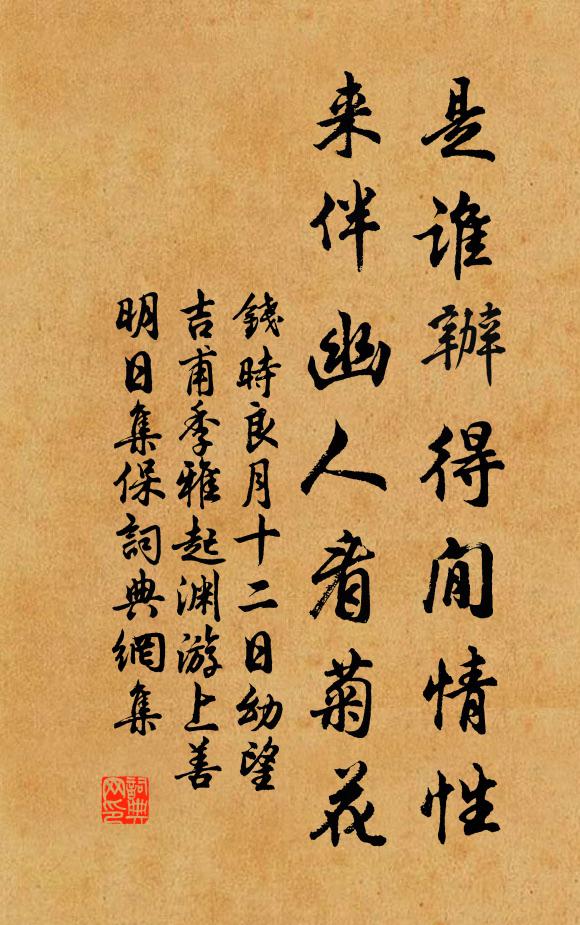 是誰辦得閒情性
来伴幽人看菊花
錢時良月十二日幼望
吉甫季雅起渊游上善
明日集保詞典網集
詞典
网印